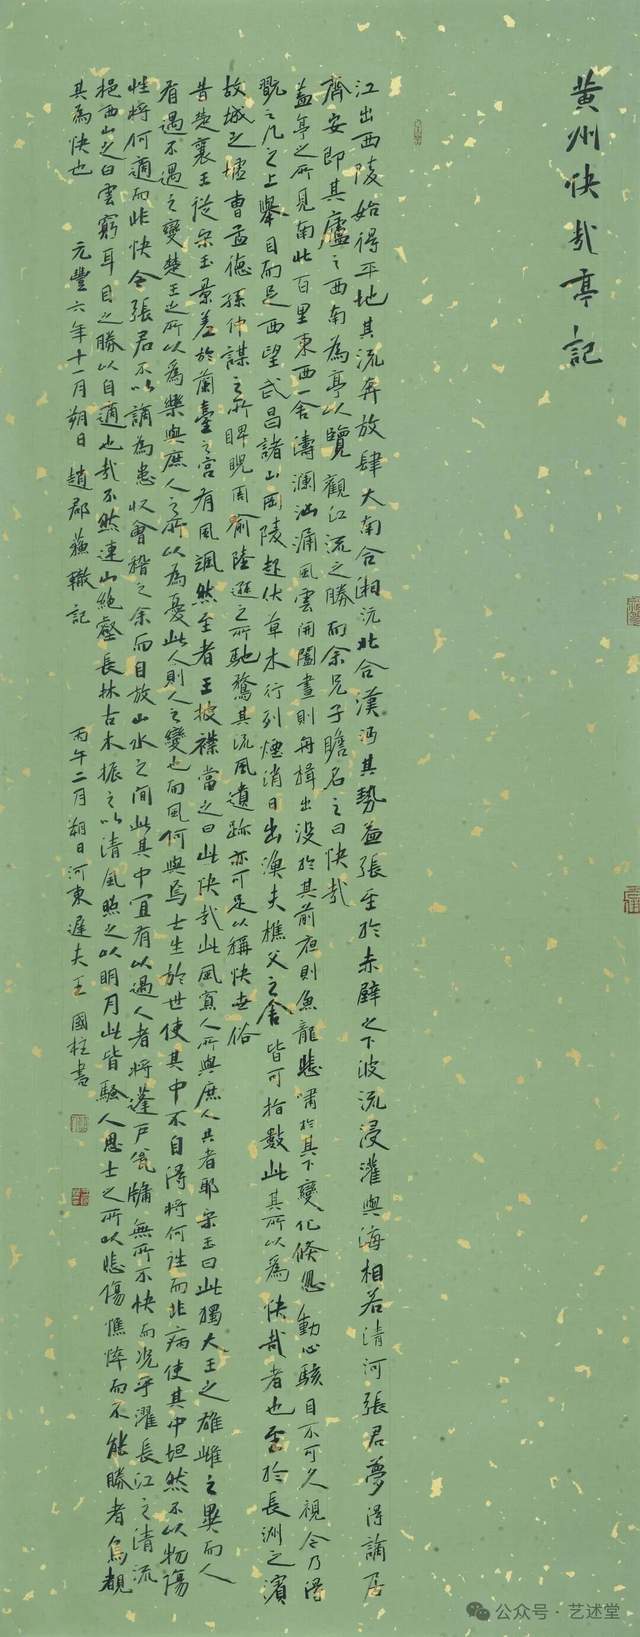 黄州快哉亭記
江出西陵始得平地其流奔放肆大南合湘沅北合漢沔其勢益張至於赤壁之下波流浸灌與海相若清河張君夢得謫居
齊安即其廬之西南為亭以覽觀江流之勝而余兄子瞻名之曰快哉
蓋亭之所見南北百里東西一舍濤瀾洶涌風雲開闔晝則舟楫出没於其前夜則魚龍悲嘯於其下變化倏忽動心駭目不可久視今乃得
翫之几之上舉目而足西望武昌諸山岡陵起伏草木行列煙消日出漁夫樵父之舍皆可指數此其所以為快哉者也至於長洲之濱
故城之墟曹孟德孫仲謀之所睥睨周俞陸遜之所馳騖其流風遺跡亦可足以稱快世俗
昔楚襄王從宋玉景差於蘭臺之宮有風颯然至者王披襟當之曰此快哉此風寡人所與庶人共者耶宋玉曰此獨大王之雄雌之異而人
有遇不遇之變楚王之所以為樂與庶人之所以為憂此人則人之變也而風何與焉士生於世使其中不自得將何往而非病使其中坦然不以物傷
性將何適而非快今張君不以謫為患收會稽之余而自放山水之間此其中宜有以過人者將蓬戶甕牖無所不快而況乎濯長江之清流
挹西山之白雲窮耳目之勝以自適也哉不然連山絕壑長林古木振之以清風照之以明月此皆騷人思士之所以悲傷憔悴而不能勝者烏覩
其為快也 元豐六年十一月朔日趙郡蘇轍記 丙午二月朔日河東遲夫王國柱書
公众号·艺述堂